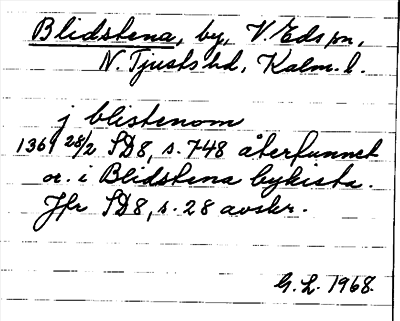 Blidstena, by, V. Eds sn,
N. Tjusts hd, Kalm. l.
j blistenom
1369 28/2 SD8, s. 748 återfunnet
or. i Blidstena bykista.
Jfr SD8, s. 28 avskr.
G. L. 1968.